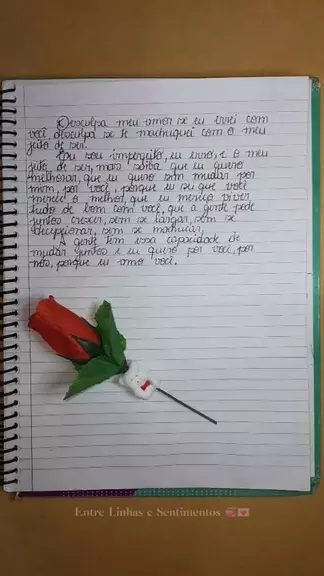 Desculpa meu amor se eu errei com
você, desculpa se te machuquei com o meu
jeito de ser.
Eu sou imperfeito, eu erro, é o meu
jeito de ser, mas saiba que eu quero
melhorar, que eu quero sim mudar por
mim, por você, porque eu sei que você
merece o melhor, que eu mereço viver
tudo de bom com você, que a gente pode
juntos crescer, sem se largar, sem se
decepcionar, sem se machucar,
A gente tem uma capacidade de
mudar juntos e eu quero por você, por
nós, porque eu amo você.
Entre Linhas e Sentimentos